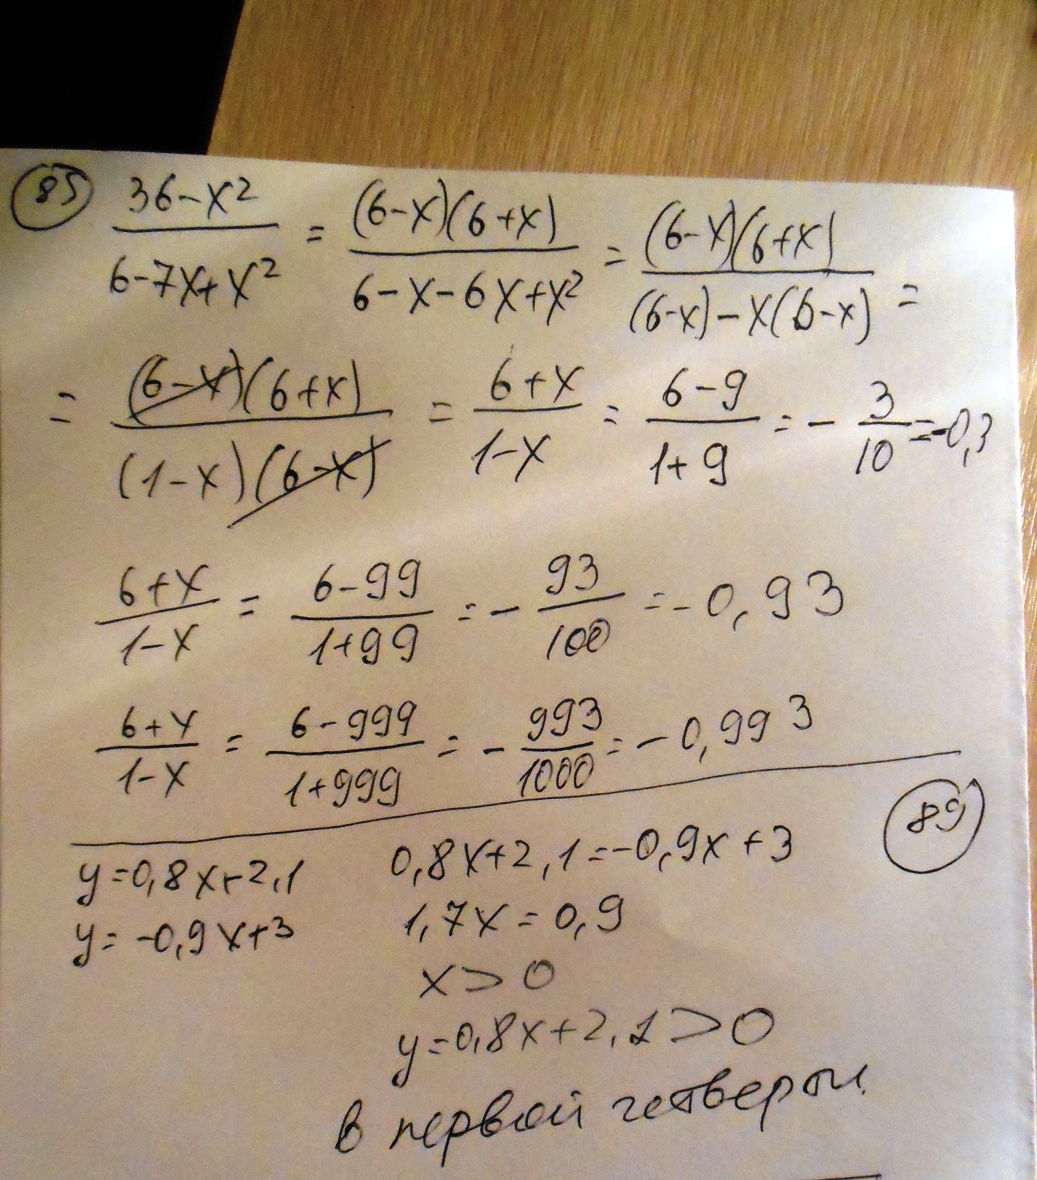 85 (36-x²)/(6-7x+x²) = ((6-x)(6+x))/(6-x-6x+x²) = ((6-x)(6+x))/((6-x)-x(6-x)) =
= ((6-x)(6+x))/((1-x)(6-x)) = (6+x)/(1-x) = (6-9)/(1+9) = -3/10 = -0,3
(6+x)/(1-x) = (6-99)/(1+99) = -93/100 = -0,93
(6+x)/(1-x) = (6-999)/(1+999) = -993/1000 = -0,993
89
y=0,8x+2,1
y=-0,9x+3
0,8x+2,1=-0,9x+3
1,7x=0,9
x>0
y=0,8x+2,1>0
в первой четверти.